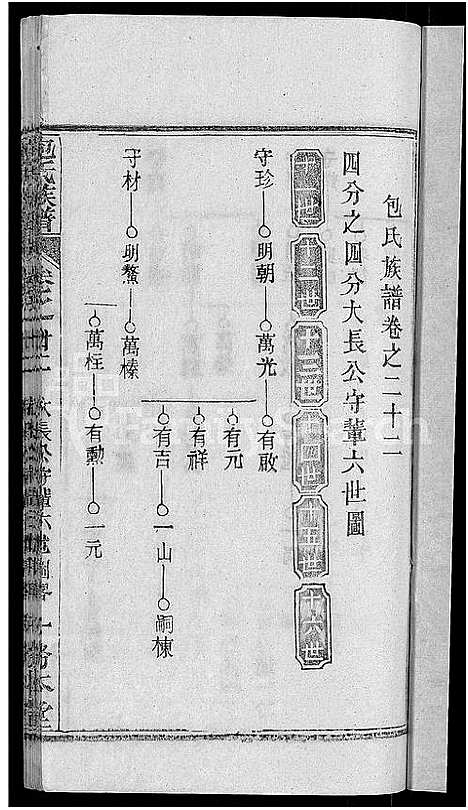 包氏族譜卷之二十二
四分之四分大長公守輩六世圖
十一世 十二世 十三世 十四世 十五世 十六世
守珍 明朝 萬光 有啟
有元
有祥
有吉 一山 嗣棟
守材 明鰲 萬榛
萬枉 有勳 一元
包氏族譜